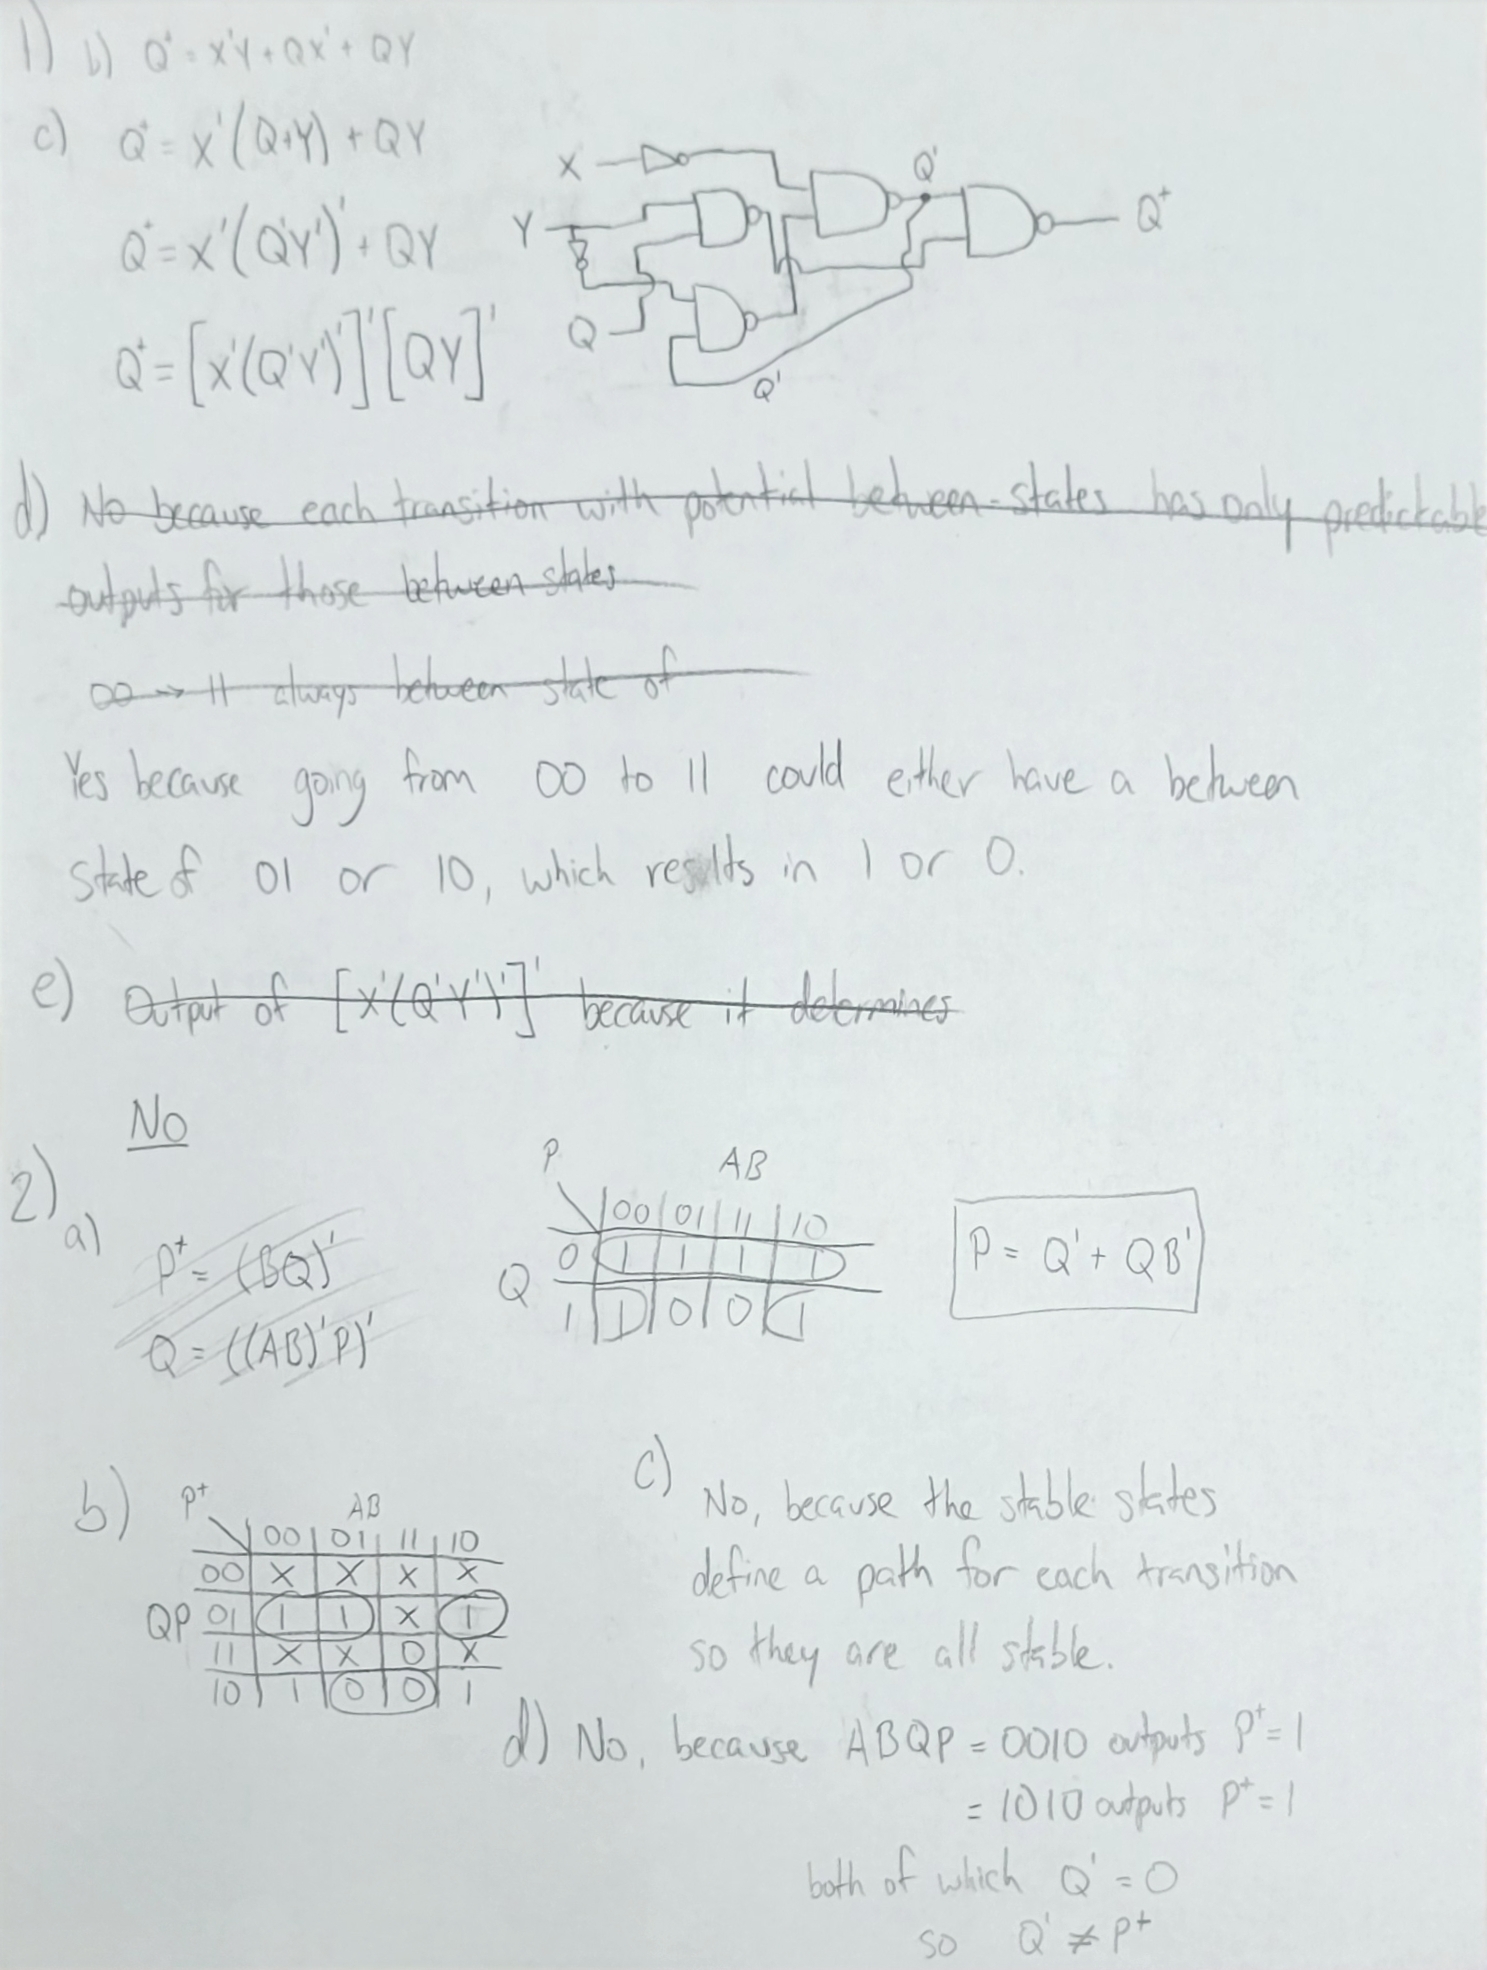 1) b) Q⁺ = X'Y + QX' + QY
c) Q⁺ = X'(Q+Y) + QY
Q⁺ = X'(Q'Y')' + QY
Q⁺ = [X'(Q'Y')']'[QY]'
X
Y
Q
Q'
Q'
Q⁺
d) No because each transition with potential between-states has only predictable
outputs for those between states
00 → 11 always between state of
Yes because going from 00 to 11 could either have a between
state of 01 or 10, which results in 1 or 0.
e) Output of [X'(Q'Y')']' because it determines
No
2)
a) P⁺ = (BQ)'
Q = ((AB)'P)'
P AB
00 01 11 10
Q 0 1 1 1 1
1 1 0 0 1
P = Q' + QB'
b) P⁺ AB
00 01 11 10
00 X X X X
QP 01 1 1 X 1
11 X X 0 X
10 1 0 0 1
c) No, because the stable states
define a path for each transition
so they are all stable.
d) No, because ABQP = 0010 outputs P⁺ = 1
= 1010 outputs P⁺ = 1
both of which Q' = 0
so Q' ≠ P⁺